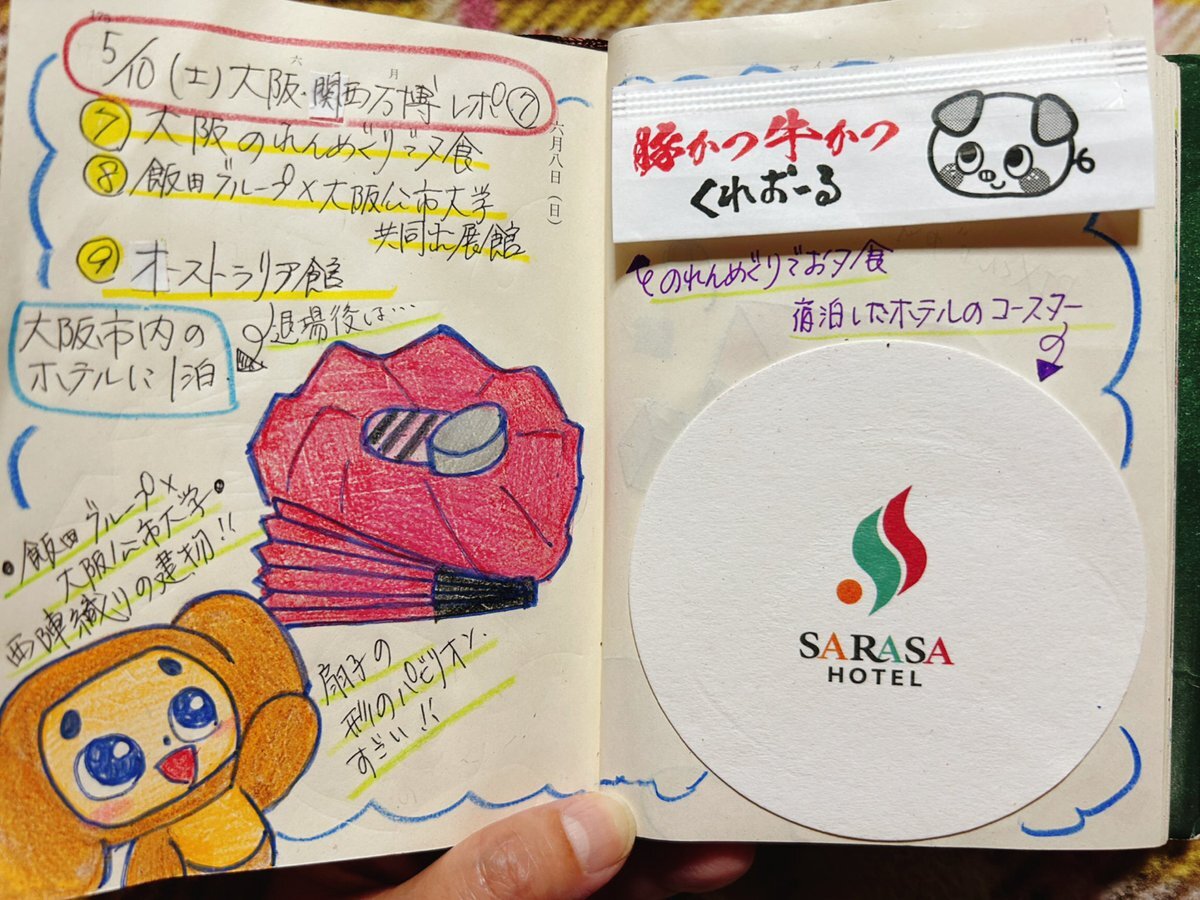 六月八日(日)
5/10(土)大阪・関西万博レポ⑦
⑦大阪のれんめぐりで夕食
⑧飯田グループ×大阪公市大学
共同出展館
⑨オーストラリア館
退場後は…
大阪市内の
ホテルに1泊
•飯田グループ×
大阪公市大学•
西陣織りの建物!!
扇子の
形のパビリオン、
すごい!!
豚かつ牛かつ
くれおーる
のれんめぐりでお夕食
宿泊したホテルのコースター
SARASA
HOTEL